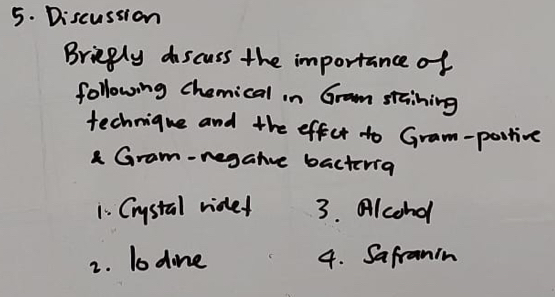 5. Discussion
Briefly discuss the importance of
following chemical in Gram staining
technique and the effect to Gram-positive
& Gram-negative bacteria
1. Crystal violet 3. Alcohol
2. Iodine 4. Safranin